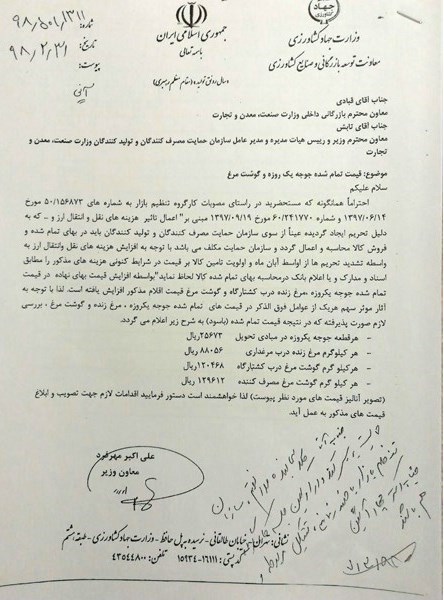 جمهوری اسلامی ایران
باسمه تعالی
«سال رونق تولید» (مقام معظم رهبری)
وزارت جهاد کشاورزی
معاونت توسعه بازرگانی و صنایع کشاورزی
شماره:
تاریخ: ۹۸/۲/۳۱
پیوست:
آنی
جناب آقای قبادی
معاون محترم بازرگانی داخلی وزارت صنعت، معدن و تجارت
جناب آقای تابش
معاون محترم وزیر و رییس هیات مدیره و مدیر عامل سازمان حمایت مصرف کنندگان و تولید کنندگان وزارت صنعت، معدن و
تجارت
موضوع: قیمت تمام شده جوجه یک روزه و گوشت مرغ
سلام علیکم
احتراماً همانگونه که مستحضرید در راستای مصوبات کارگروه تنظیم بازار به شماره های ۵۰/۱۵۶۸۷۳ مورخ
۱۳۹۷/۰۶/۱۴ و شماره ۶۰/۲۴۱۷۷۰ مورخ ۱۳۹۷/۰۹/۱۹ مبنی بر" اعمال تاثیر هزینه های نقل و انتقال ارز و – که به
دلیل تحریم ایجاد گردیده عیناً از سوی سازمان حمایت مصرف کنندگان و تولید کنندگان باید در بهای تمام شده و
فروش کالا محاسبه و اعمال گردد و سازمان حمایت مکلف می باشد با توجه به افزایش هزینه های نقل وانتقال ارز به
واسطه تشدید تحریم ها از اواسط آبان ماه و اولویت تامین کالا بر قیمت در شرایط کنونی هزینه های مذکور را مطابق
اسناد و مدارک و یا اعلام بانک درمحاسبه بهای تمام شده کالا لحاظ نماید"بواسطه افزایش قیمت بهای نهاده در قیمت
تمام شده جوجه یکروزه ،مرغ زنده درب کشتارگاه و گوشت مرغ قیمت اقلام مذکور افزایش یافته است. لذا با توجه به
آثار موثر سهم هریک از عوامل فوق الذکر در قیمت های تمام شده جوجه یکروزه ، مرغ زنده و گوشت مرغ ، بررسی
لازم صورت پذیرفته که در نتیجه قیمت تمام شده (باسود) به شرح زیر اعلام می گردد.
- هرقطعه جوجه یکروزه در مبادی تحویل ۲۵۶۷۳ریال
- هر کیلوگرم مرغ زنده درب مرغداری ۸۸۰۵۶ ریال
- هر کیلو گرم گوشت مرغ درب کشتارگاه ۱۲۰۴۶۸ریال
- هر کیلو گرم گوشت مرغ مصرف کننده ۱۲۹۶۱۲ ریال
(تصویر آنالیز قیمت های مورد نظر پیوست) لذا خواهشمند است دستور فرمایید اقدامات لازم جهت تصویب و ابلاغ
قیمت های مذکور به عمل آید.
علی اکبر مهرفرد
معاون وزیر
نشانی: تهران، خیابان طالقانی - نرسیده به پل حافظ - وزارت جهاد کشاورزی - طبقه هشتم
کد پستی: ۱۶۱۱۱-۱۵۹۳۴ تلفن: ۴۳۵۴۴۸۰۰